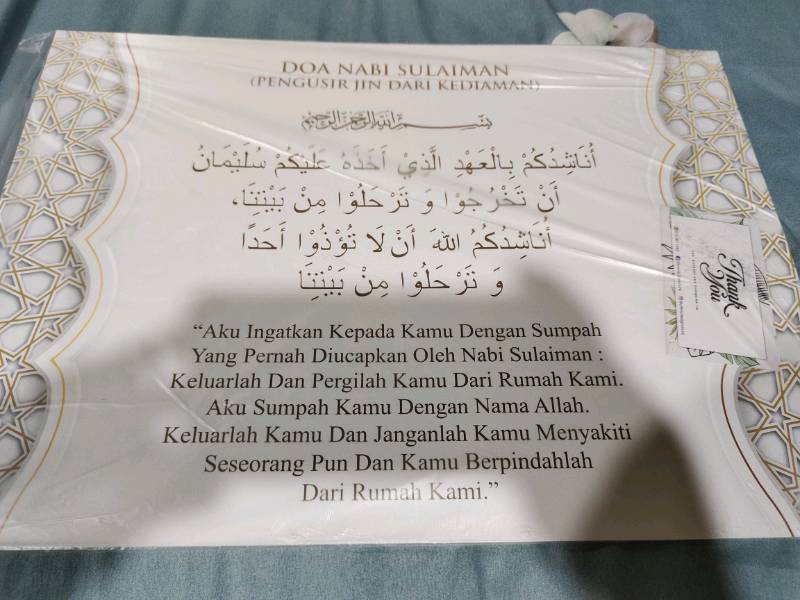 DOA NABI SULAIMAN
(PENGUSIR JIN DARI KEDIAMAN)
بسم الله الرحمن الرحيم
أُنَاشِدُكُمْ بِالْعَهْدِ الَّذِيْ أَخَذَهُ عَلَيْكُمْ سُلَيْمَانُ
أَنْ تَخْرُجُوْا وَ تَرْحَلُوْا مِنْ بَيْتِنَا،
أُنَاشِدُكُمُ اللهَ أَنْ لَا تُؤْذُوْا أَحَدًا
وَ تَرْحَلُوْا مِنْ بَيْتِنَا
“Aku Ingatkan Kepada Kamu Dengan Sumpah
Yang Pernah Diucapkan Oleh Nabi Sulaiman :
Keluarlah Dan Pergilah Kamu Dari Rumah Kami.
Aku Sumpah Kamu Dengan Nama Allah.
Keluarlah Kamu Dan Janganlah Kamu Menyakiti
Seseorang Pun Dan Kamu Berpindahlah
Dari Rumah Kami.”
Thank
You